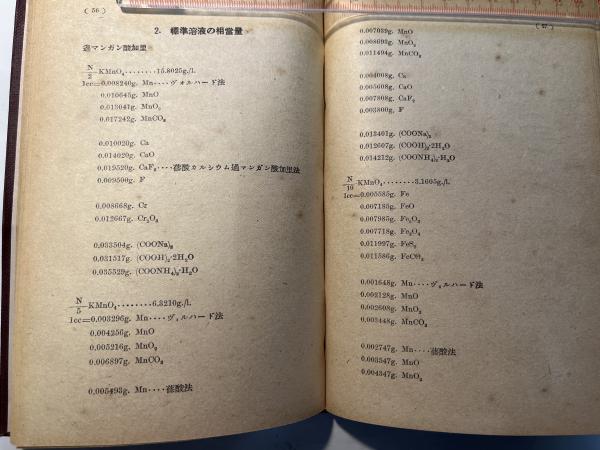 ( 56 )
2. 標準溶液の相當量
過マンガン酸加里
N/2 KMnO₄........15.8025g./l.
1cc=0.008240g. Mn....ヴォルハード法
0.010645g. MnO
0.013041g. MnO₂
0.017242g. MnCO₃
0.010020g. Ca
0.014020g. CaO
0.019520g. CaF₂....蓚酸カルシウム過マンガン酸加里法
0.009500g. F
0.008668g. Cr
0.012667g. Cr₂O₃
0.033504g. (COONa)₂
0.031517g. (COOH)₂·2H₂O
0.035529g. (COONH₄)₂·H₂O
N/5 KMnO₄........6.3210g./l.
1cc=0.003296g. Mn....ヴォルハード法
0.004256g. MnO
0.005216g. MnO₂
0.006897g. MnCO₃
0.005493g. Mn....蓚酸法
( 57 )
0.007039g. MnO
0.008693g. MnO₂
0.011494g. MnCO₃
0.004008g. Ca
0.005608g. CaO
0.007808g. CaF₂
0.003800g. F
0.013401g. (COONa)₂
0.012607g. (COOH)₂·2H₂O
0.014212g. (COONH₄)₂·H₂O
N/10 KMnO₄........3.1605g./l.
1cc=0.005585g. Fe
0.007185g. FeO
0.007985g. Fe₂O₃
0.007718g. Fe₃O₄
0.011997g. FeS₂
0.011586g. FeCO₃
0.001648g. Mn....ヴォルハード法
0.002128g. MnO
0.002608g. MnO₂
0.003448g. MnCO₃
0.002747g. Mn....蓚酸法
0.003547g. MnO
0.004347g. MnO₂